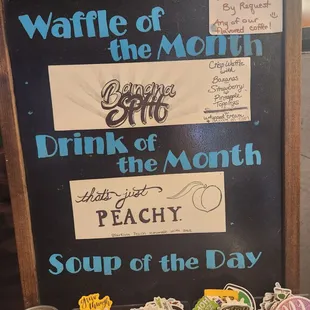 By Request
Any of our
flavored coffee!
Waffle of
the Month
Banana
Split
Crisp Waffle
with
Bananas
Strawberry
&
Pineapple
Toppings
Whipped Cream
Drink of
the Month
that's just
PEACHY.
Soup of the Day
give
thanks